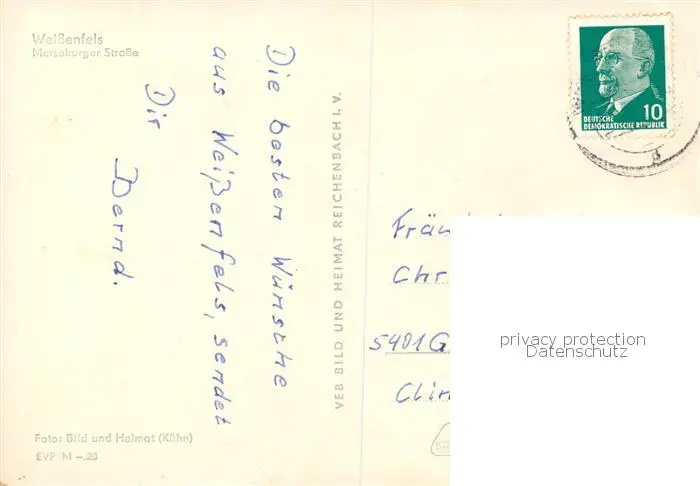 Weißenfels
Merseburger Straße
Die besten Wünsche
aus Weißenfels, sendet
Dir
Bernd.
Foto: Bild und Heimat (Kühn)
EVP M –.20
VEB BILD UND HEIMAT REICHENBACH I. V.
10
DEUTSCHE
DEMOKRATISCHE REPUBLIK
Chr
5401 G
privacy protection
Datenschutz